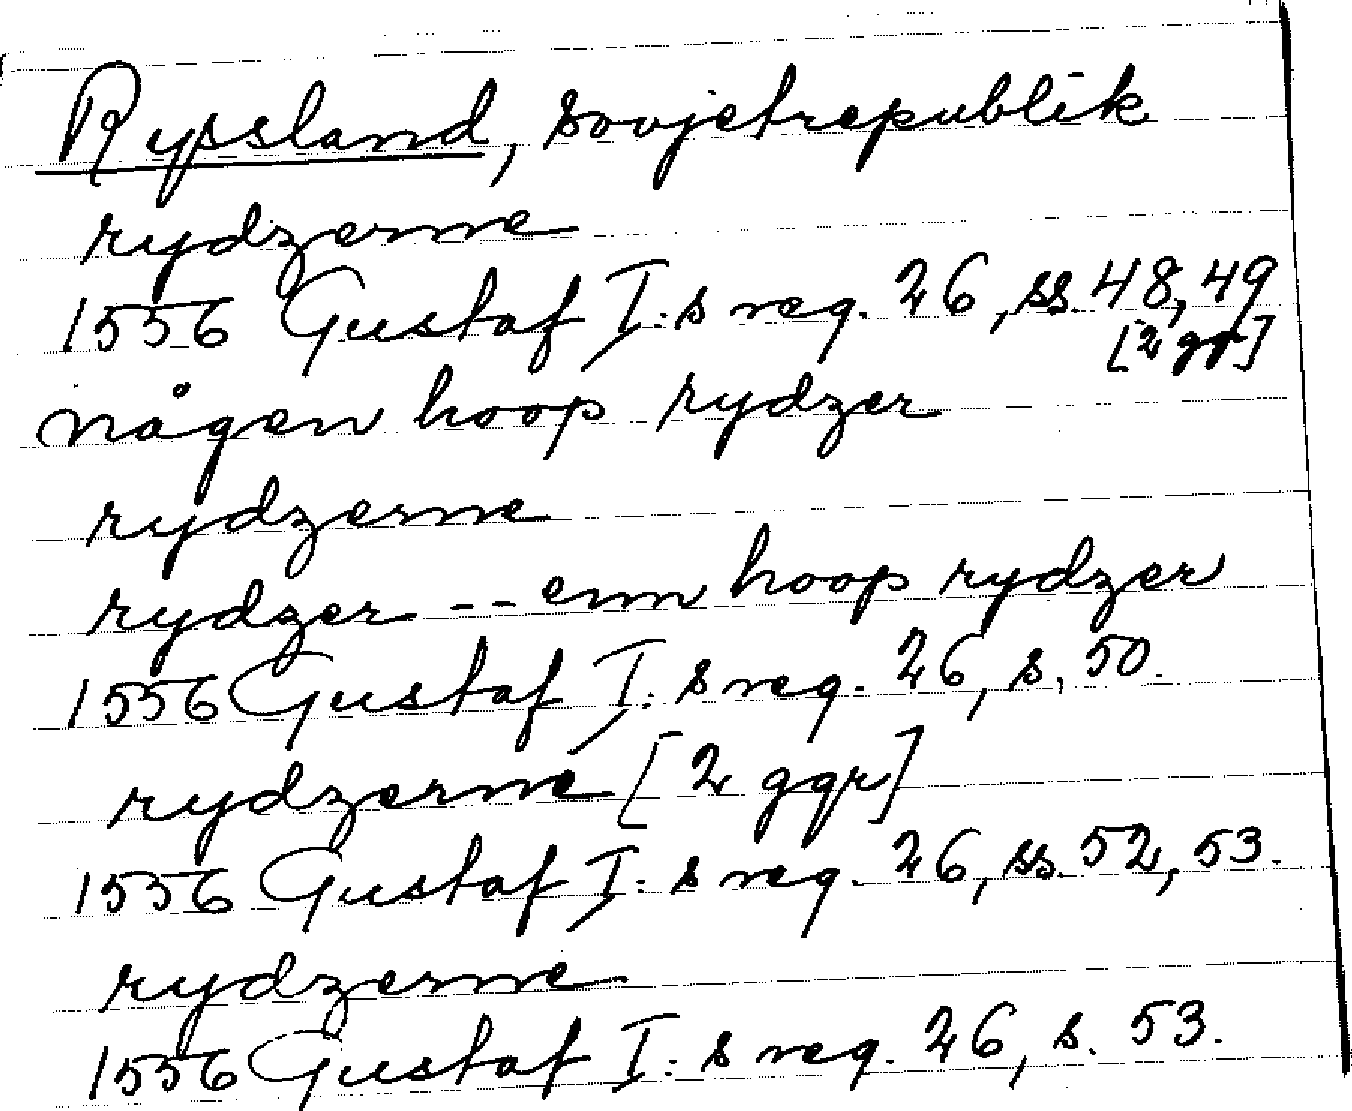 Ryssland, sovjetrepublik
rydzerne
1556 Gustaf I:s reg. 26, ss. 48, 49
[2 ggr]
någen hoop rydzer
rydzerne
rydzer -- enn hoop rydzer
1556 Gustaf I:s reg. 26, s. 50.
rydzerne [2 ggr]
1556 Gustaf I:s reg. 26, ss. 52, 53.
rydzerne
1556 Gustaf I:s reg. 26, s. 53.